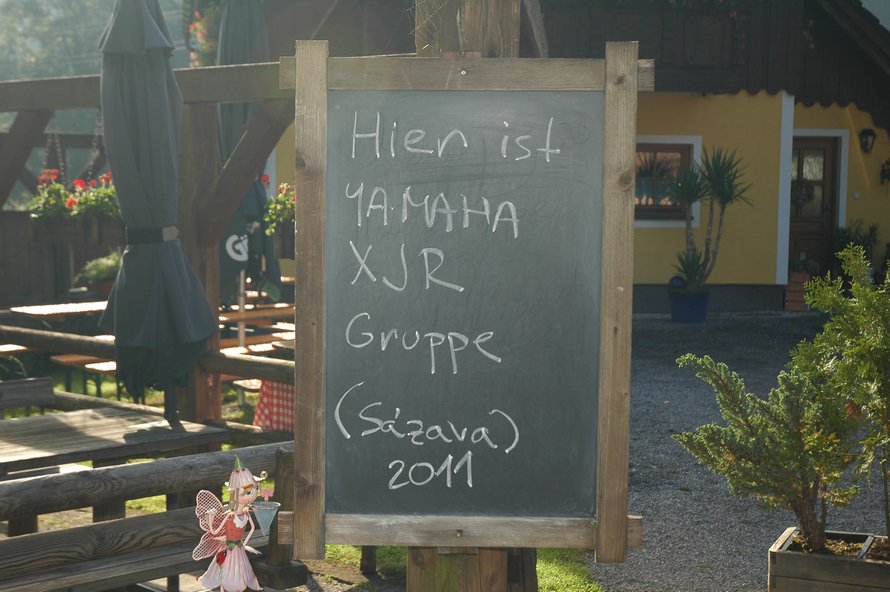 Hier ist
YAMAHA
XJR
Gruppe
(Sázava)
2011